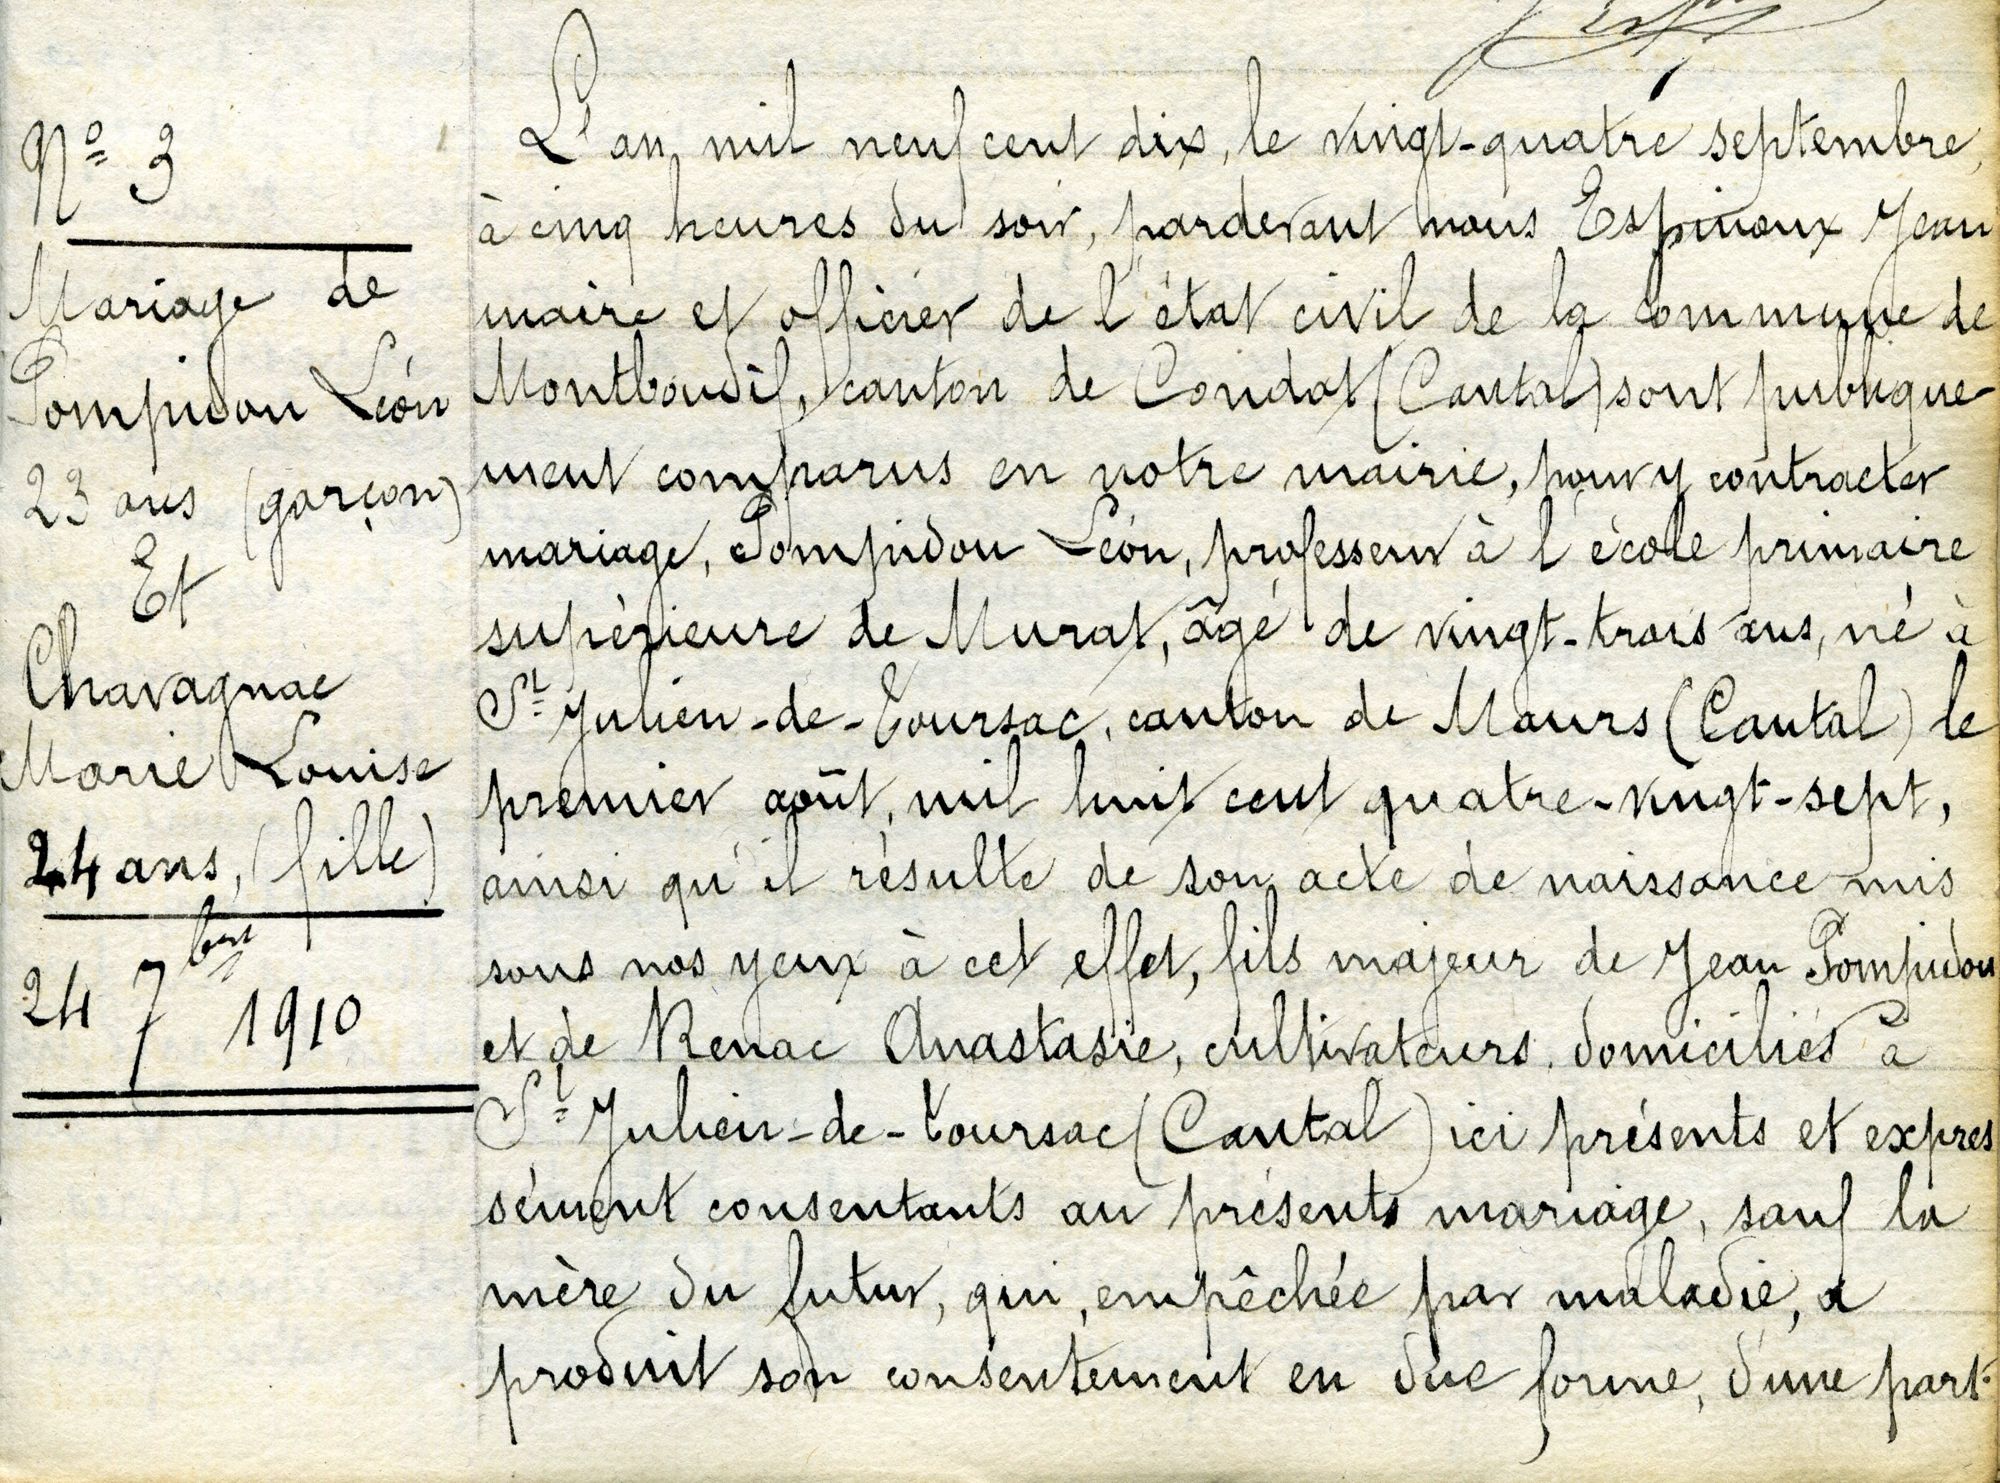 Nº 3
Mariage de
Pompidou Léon
23 ans (garçon)
Et
Chavagnac
Marie Louise
24 ans, (fille)
24 7bre 1910
L'an mil neuf cent dix, le vingt-quatre septembre,
à cinq heures du soir, pardevant nous Espinoux Jean
maire et officier de l'état civil de la commune de
Montboudif, canton de Condat (Cantal) sont publique
ment comparus en notre mairie, pour y contracter
mariage, Pompidou Léon, professeur à l'école primaire
supérieure de Murat, âgé de vingt-trois ans, né à
St Julien-de-Toursac, canton de Maurs (Cantal) le
premier août, mil huit cent quatre-vingt-sept,
ainsi qu'il résulte de son acte de naissance mis
sous nos yeux à cet effet, fils majeur de Jean Pompidou
et de Renac Anastasie, cultivateurs, domiciliés à
St Julien-de-Toursac (Cantal) ici présents et expres
sément consentants au présents mariage, sauf la
mère du futur, qui, empêchée par maladie, a
produit son consentement en due forme, d'une part.